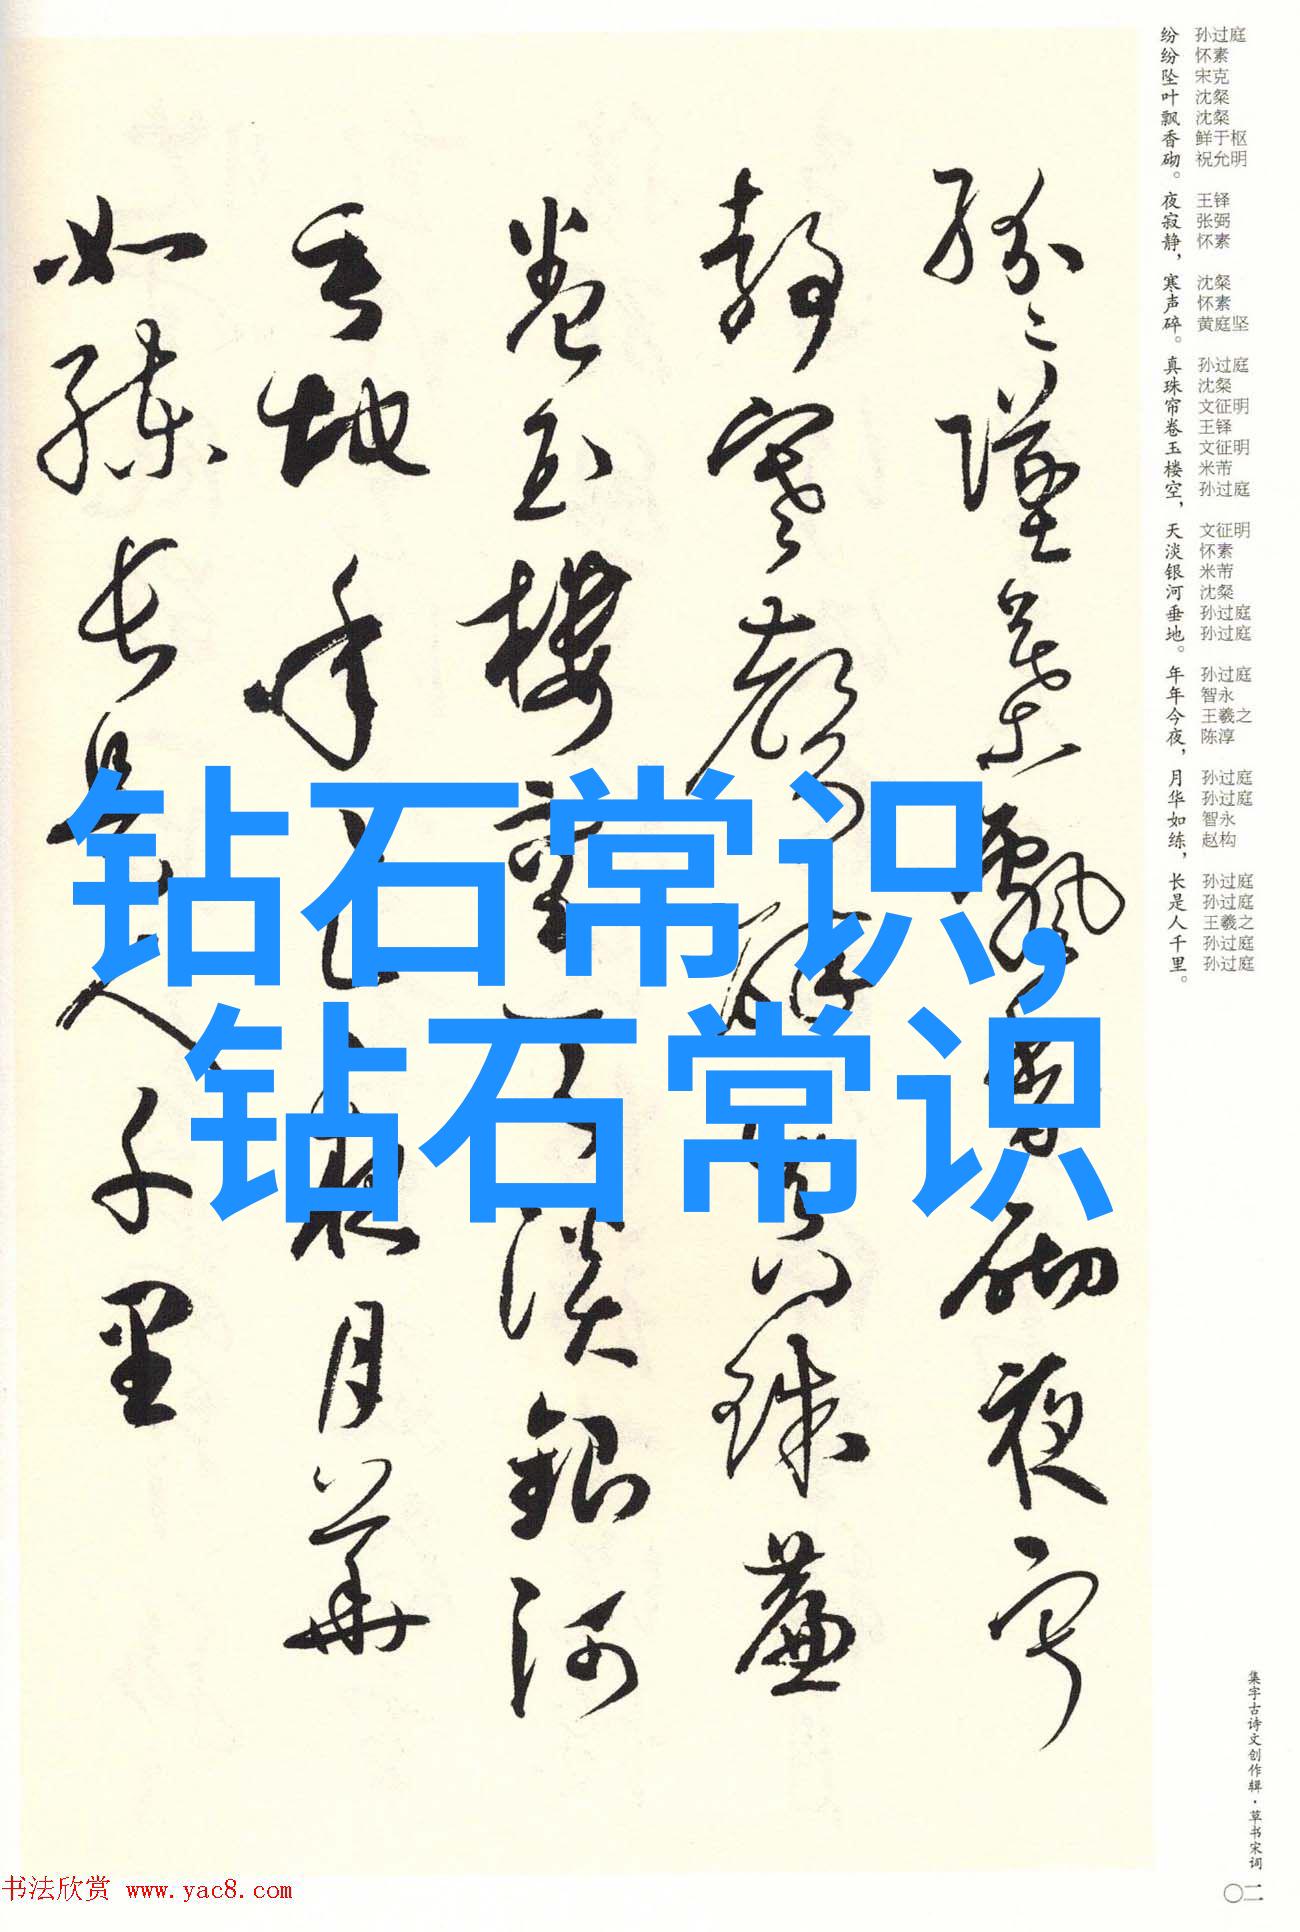 纷纷坠叶飘香砌。夜寂静，寒声碎。真珠帘卷玉楼空，天淡银河垂地。年年今夜，月华如练，长是人千里。
孙过庭 怀素 宋克 沈粲 沈粲 鲜于枢 祝允明 王铎 张弼 怀素 沈粲 怀素 黄庭坚 孙过庭 沈粲 文征明 王铎 文征明 米芾 孙过庭 文征明 怀素 米芾 沈粲 孙过庭 孙过庭 孙过庭 智永 王羲之 陈淳 孙过庭 孙过庭 智永 赵构 孙过庭 孙过庭 王羲之 孙过庭 孙过庭
纷〻坠叶飘香砌夜寂
静寒声碎真珠簾
卷玉楼空天淡銀河
垂地年〻今夜月華
如練长是人千里
钻石常识,
钻石常识
集字古诗文创作辑·草书宋词
〇二
书法欣赏 www.yac8.com